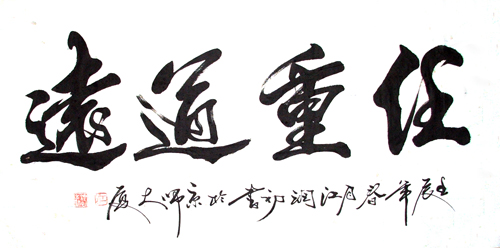 任重道遠
壬辰年春月江润初書於京師大廈